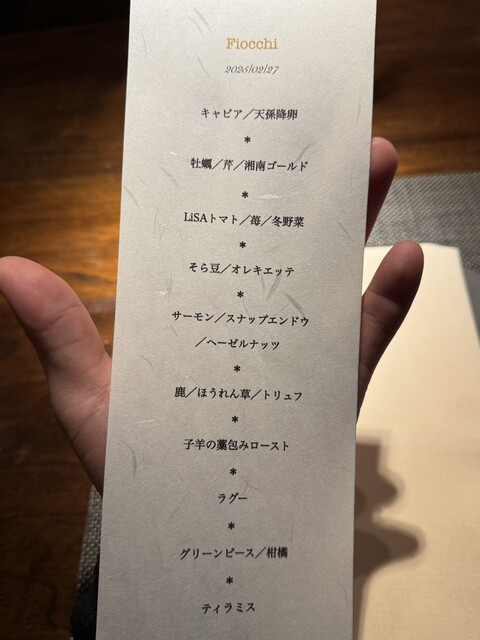 Fiocchi
2025/02/27
キャビア／天孫降卵
*
牡蠣／芹／湘南ゴールド
*
LiSAトマト／苺／冬野菜
*
そら豆／オレキエッテ
*
サーモン／スナップエンドウ
／ヘーゼルナッツ
*
鹿／ほうれん草／トリュフ
*
子羊の藁包みロースト
*
ラグー
*
グリーンピース／柑橘
*
ティラミス